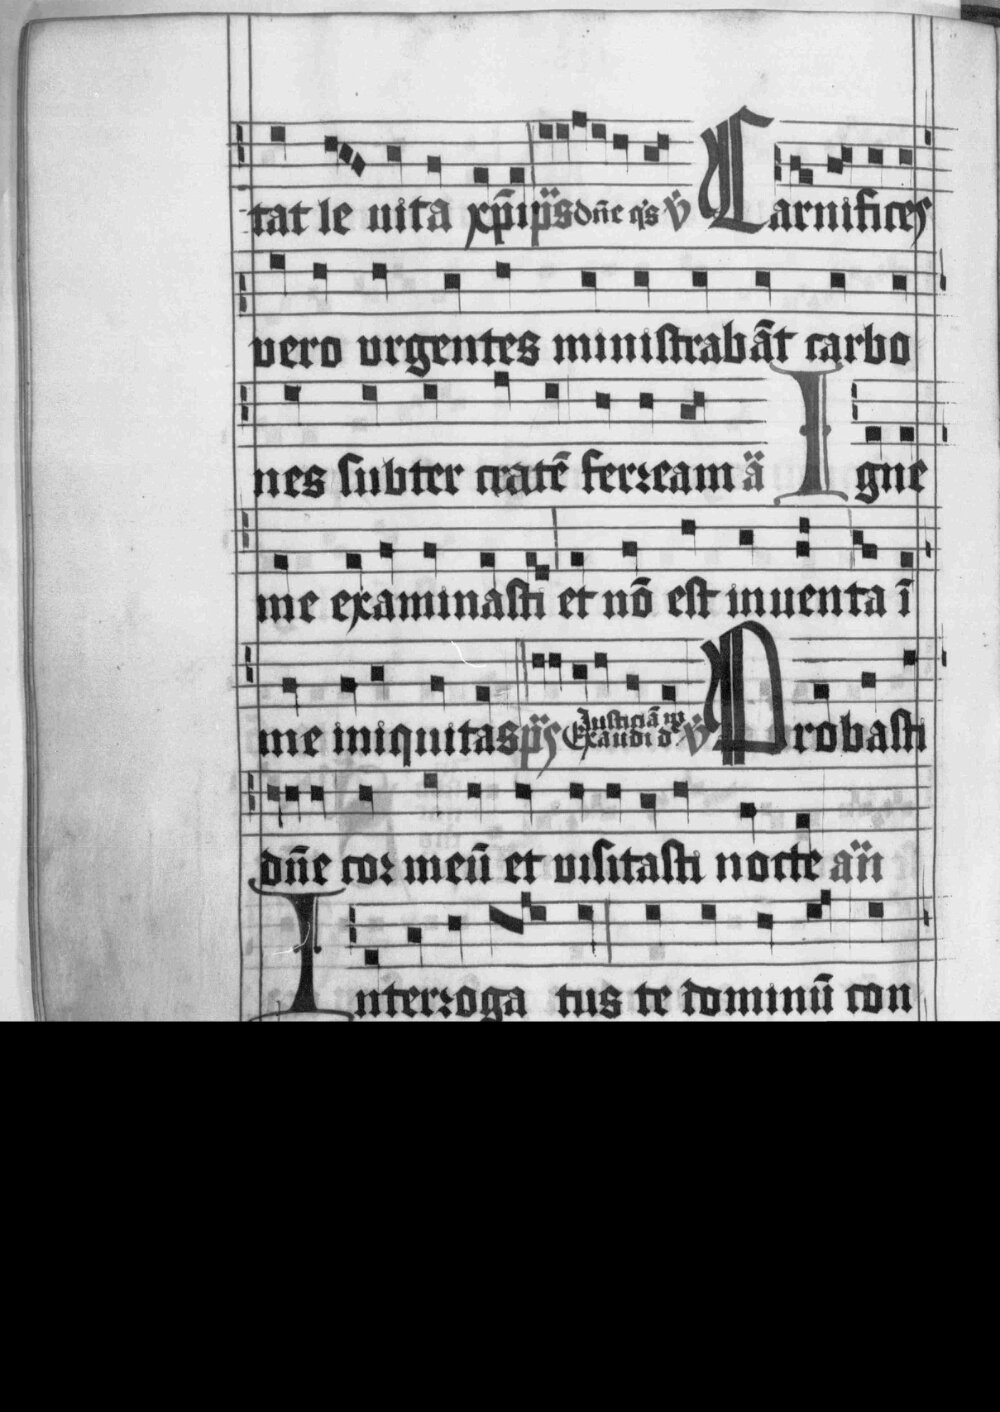 tat le uita xp̄i p̈s dn̄e q's v̇ Carnifices
vero vrgentes ministrabāt carbo
nes subter cratē ferream ä Igne
me examinasti et nō est inuenta ī
me iniquitas p̈s Iusticiā m Exaudi d v̇ Probasti
dn̄e cor meū et visitasti nocte an̈
Interroga tus te dominū con